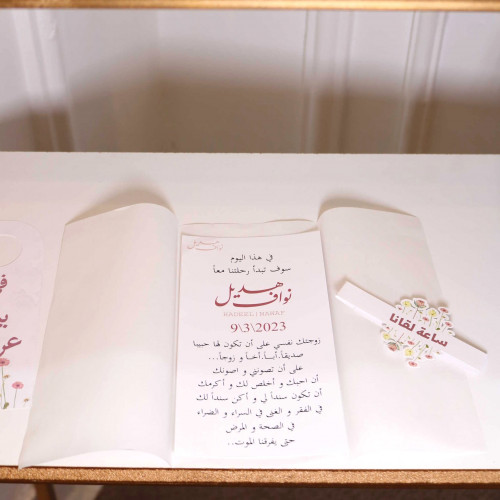 في هذا اليوم
سوف تبدأ رحلتنا معاً
هديل
نواف
HADEEL | NAWAF
9\3\2023
زوجتك نفسي على أن تكون لها حبيبا
صديقاً.أبـاً.أخـاً و زوجاً...
على أن تصونني و اصونك
أن احبك و أخلص لك و أكرمك
أن تكون سنداً لي و أكن سنداً لك
في الفقر و الغنى في السراء و الضراء
في الصحة و المرض
حتى يفرقنا الموت..
ساعة لقانا